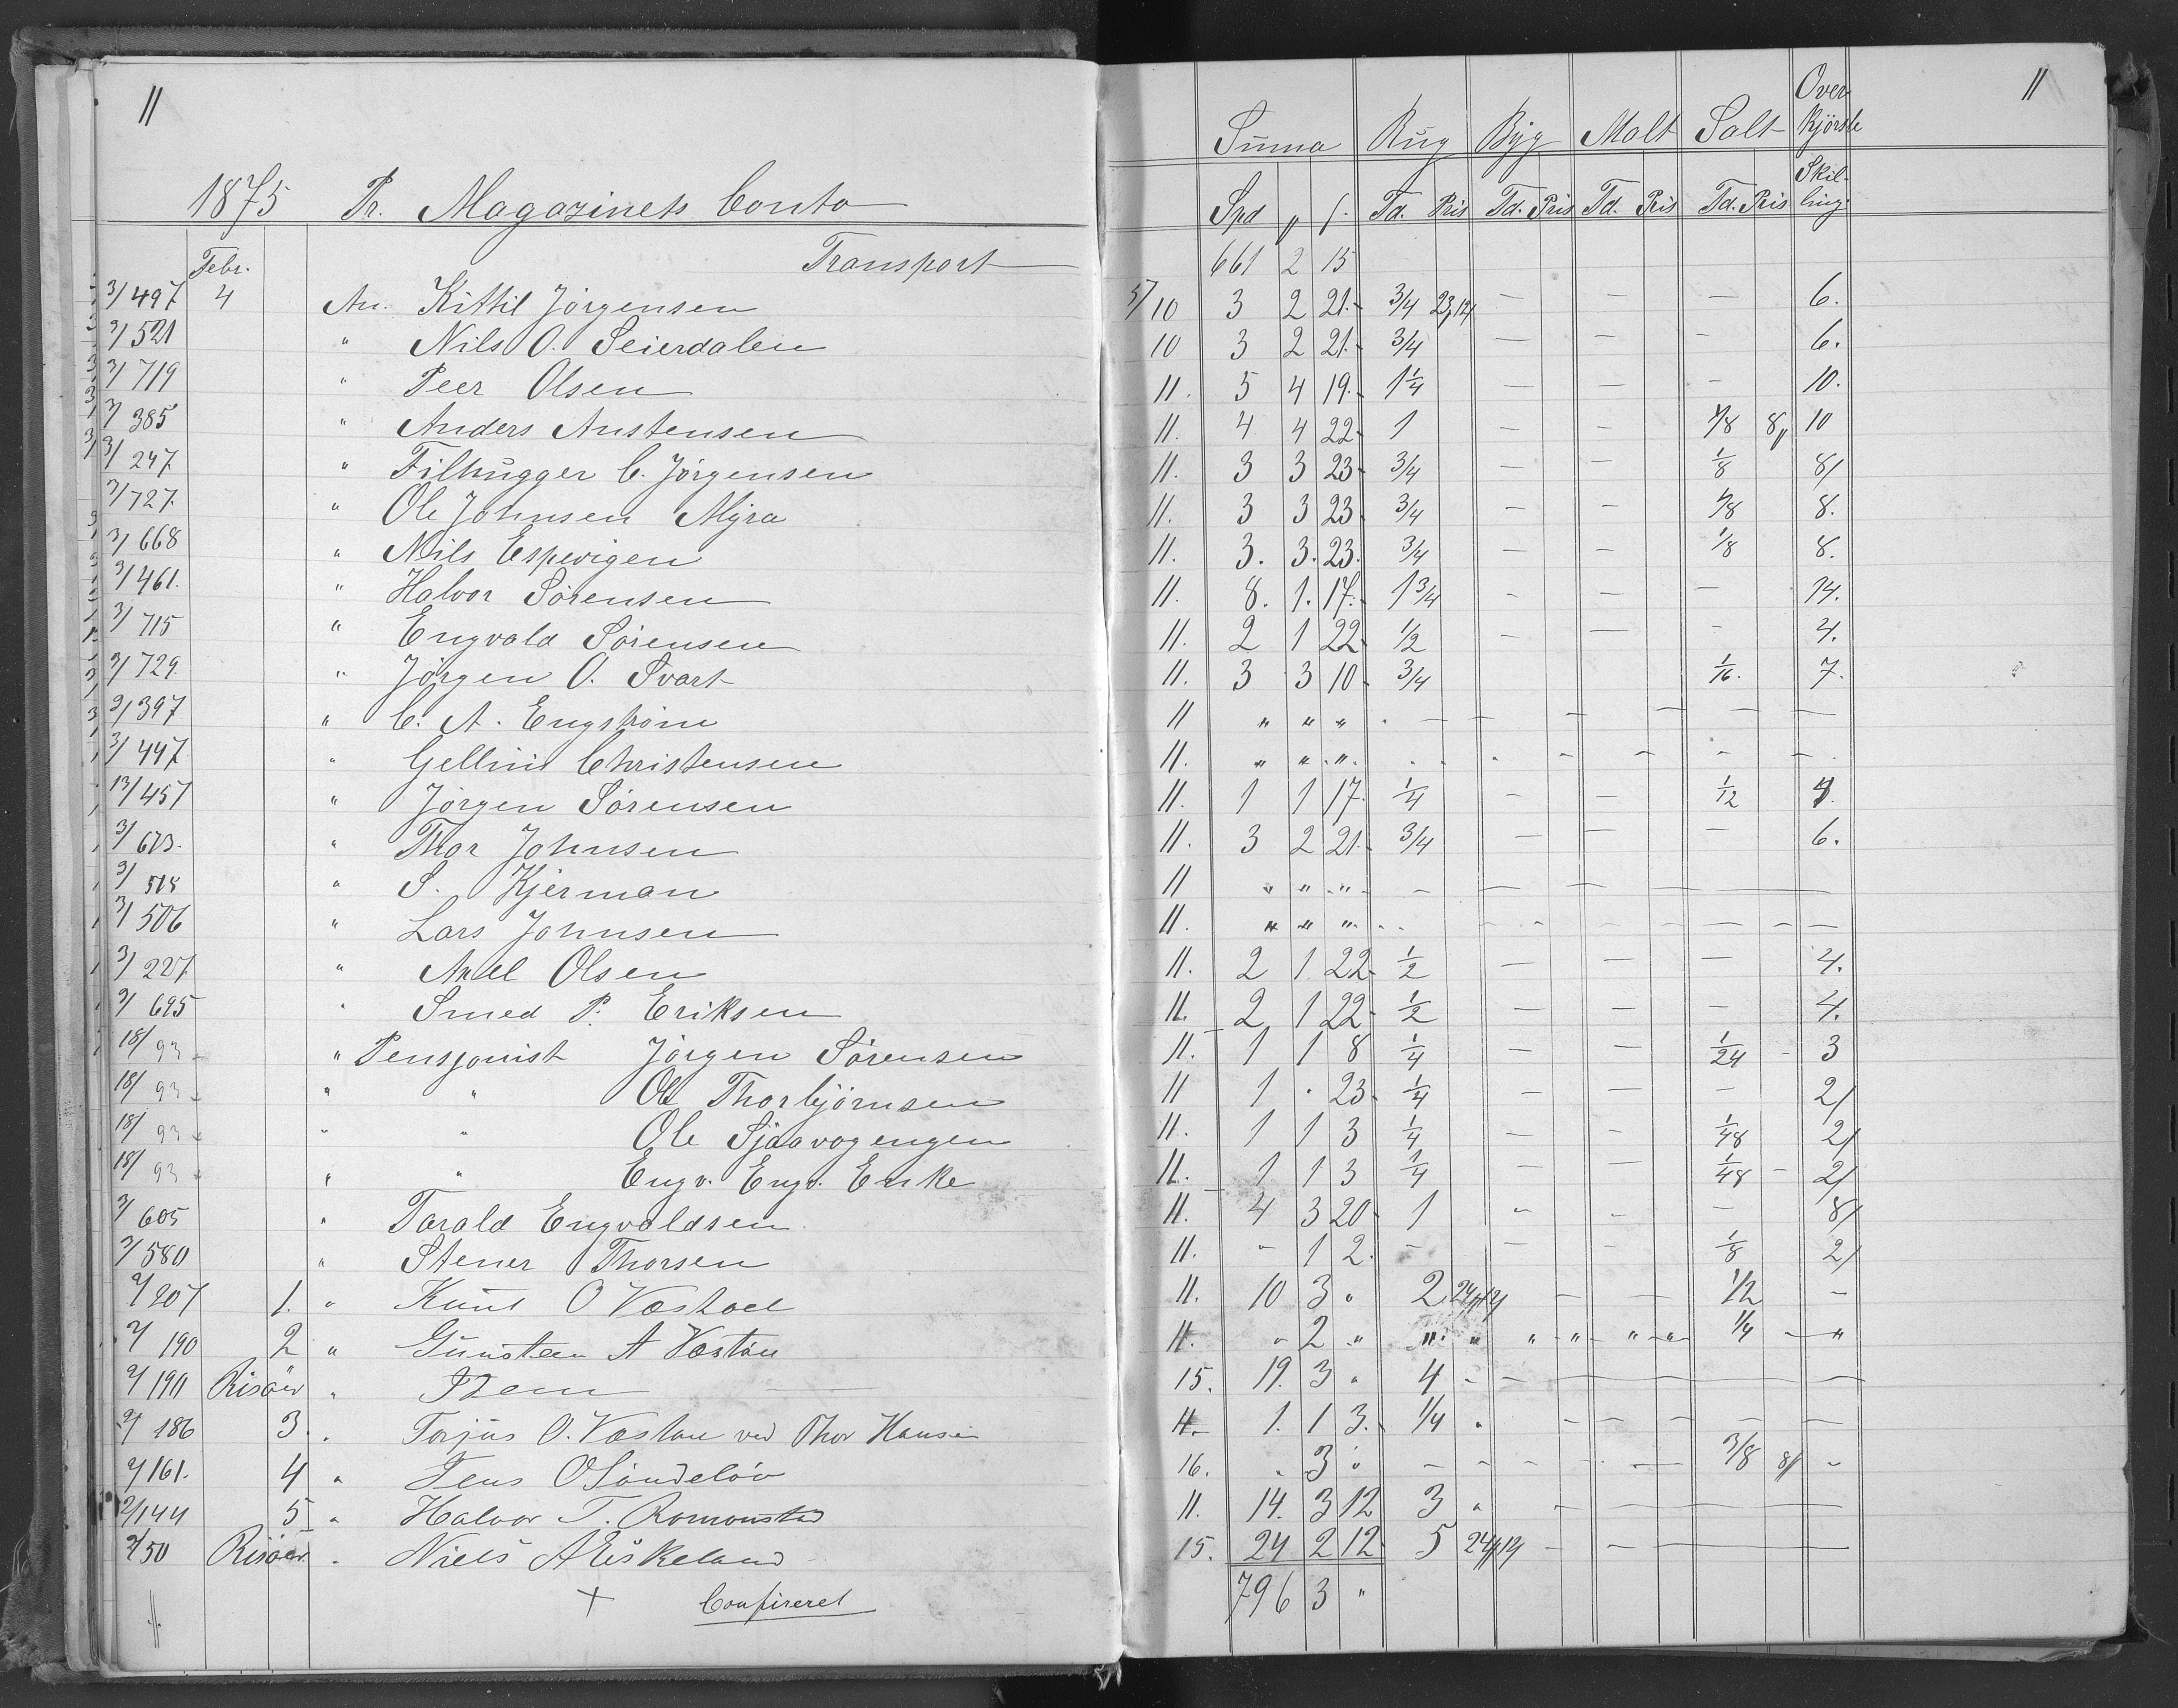 11
1875 Pr. Magazinets Conto
Febr. Transport
3/497 4 An. Kittil Jörgensen
3/521 " Nils O. Seierdalen
3/719 " Peer Olsen
3/385 " Anders Anstensen
3/247 " Filhugger C. Jörgensen
3/727. " Ole Johnsen Myra
3/668 " Nils Espevigen
3/461. " Halvor Sörensen
3/715 " Engvald Sörensen
3/729. " Jörgen O. Svart
3/397 " C. A. Engström
3/447 " Gellius Christensen
13/457 " Jörgen Sörensen
3/673. " Thor Johnsen
3/518 " S. Kjerman
3/506 " Lars Johnsen
3/227. " Axel Olsen
3/695 " Smed P. Eriksen
18/93 " Pensjonist Jörgen Sörensen
18/93 " " Ole Thorbjörnsen
18/93 " " Ole Sjaavogengen
18/93 " " Engv. Engv. Enke
3/605 " Tarald Engvaldsen
3/580 " Stener Thorsen
2/207 1. " Knut O Vestöel
2/190 2 " Gunsten A Vestöu
2/190 Risöer " Idem
2/186 3. " Torjus O. Vestöu ved Thor Hansen
2/161. 4 " Jens O Söndelöv
2/144 5 " Halvor T. Romonstad
2/50 Risöer. " Niels A Eiskeland
+ Confireret
11
Summa Rug Byg Malt Salt Over Kjørsle
Spd " ſ. Td. Pris Td. Pris Td. Pris Td. Pris Skilling.
661 2 15
5/10 3 2 21 3/4 23,12 — — — 6.
10 3 2 21 3/4 — — — 6.
11. 5 4 19 1 1/4 — — — 10.
11. 4 4 22 1 — — 1/8 8 10
11. 3 3 23 3/4 — — 1/8 8/
11. 3 3 23 3/4 — — 1/8 8.
11. 3. 3. 23. 3/4 — — 1/8 8.
11. 8. 1. 17. 1 3/4 — — — 14.
11. 2 1 22 1/2 — — — 4.
11. 3 3 10 3/4 1/16. 7.
11 " " " — — — — — —
11. " " " — — — —
11. 1 1 17 1/4 — — 1/12 4
11. 3 2 21 3/4 — — — 6.
11 " " " — — — — —
11. " " " — — — — — —
11. 2 1 22 1/2 — — — 4.
11. 2 1 22 1/2 — — — 4.
11. 1 1 8 1/4 — — 1/24 - 3
11 1 . 23 1/4 — — — 2/
11. 1 1 3 1/4 — — 1/48 2/
11. 1 1 3 1/4 — — 1/48 - 2/
11. 4 3 20 1 - - — 8/
11. - 1 2 - — — 1/8 2/
11. 10 3 " 2 24,12 — — 1/2 -
11. " 2 " " " " " " " 1/4 - "
15. 19. 3 " 4 - — — — —
11. 1. 1 3. 1/4 " — — — — —
16. . 3 " — — — — 3/8 8/ -
11. 14. 3 12 3 " — — — —
15. 24 2 12 5 24,12 — — —
796 3 "